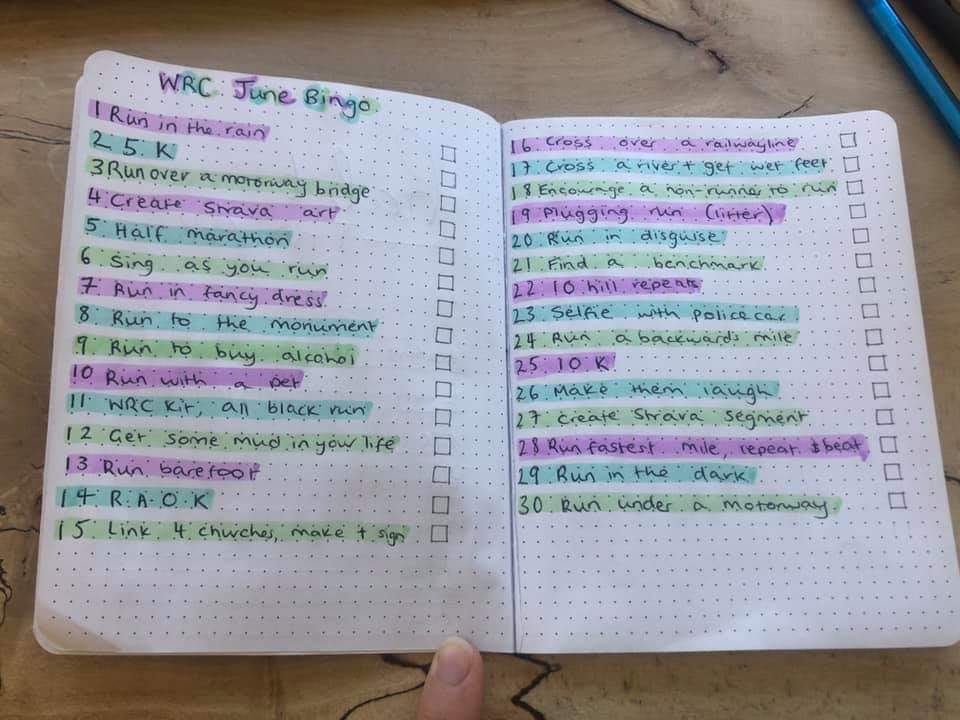 WRC June Bingo
1 Run in the rain
2 5 K
3 Run over a motorway bridge
4 Create Strava art
5 Half marathon
6 Sing as you run
7 Run in fancy dress
8 Run to the monument
9 Run to buy alcohol
10 Run with a pet
11 WRC Kit, all black run
12 Get some mud in your life
13 Run barefoot
14 R A O K
15 Link 4 churches, make + sign
16 Cross over a railwayline
17 Cross a river + get wet feet
18 Encourage a non-runner to run
19 Plugging run (litter)
20 Run in disguise
21 Find a benchmark
22 10 hill repeats
23 Selfie with police car
24 Run a backwards mile
25 10 K
26 Make them laugh
27 Create Strava segment
28 Run fastest mile, repeat & beat
29 Run in the dark
30 Run under a motorway.